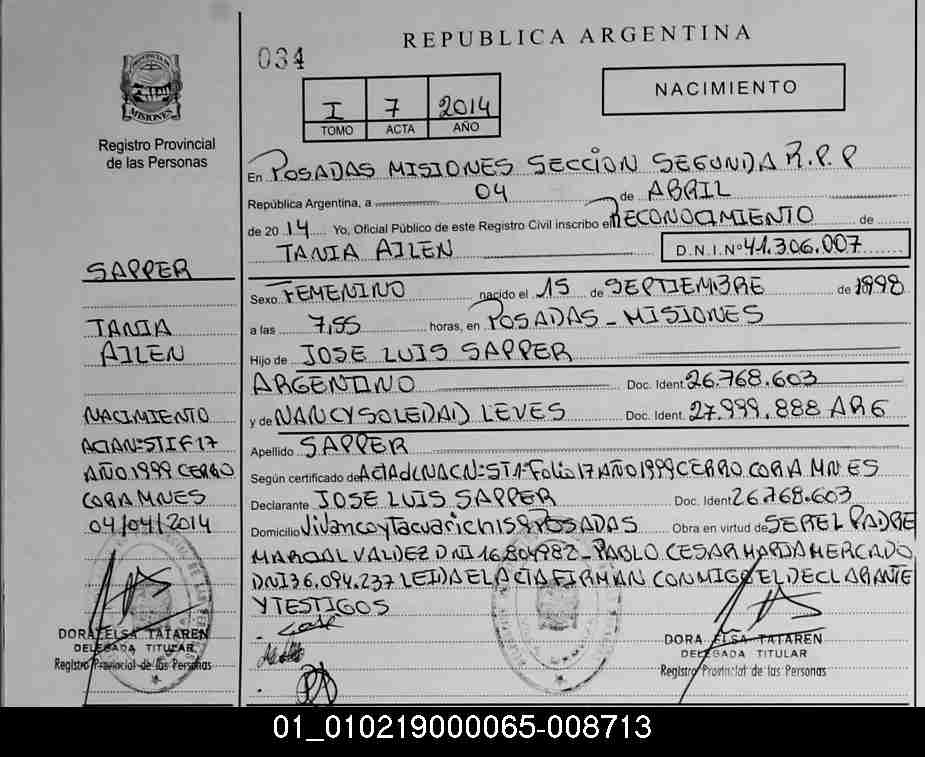 034
REPUBLICA ARGENTINA
NACIMIENTO
I 7 2014
TOMO ACTA AÑO
PROVINCIA DE MISIONES
Registro Provincial
de las Personas
En POSADAS MISIONES SECCION SEGUNDA R.P.P
República Argentina, a 04 de ABRIL
de 2014 Yo, Oficial Público de este Registro Civil inscribo el RECONOCIMIENTO de
TANIA AILEN D.N.I.Nº 41.306.007
Sexo FEMENINO nacido el 15 de SEPTIEMBRE de 1998
a las 7,55 horas, en POSADAS - MISIONES
Hijo de JOSE LUIS SAPPER
ARGENTINO Doc. Ident. 26.768.603
y de NANCY SOLEDAD LEVES Doc. Ident. 27.999.888 ARG
Apellido SAPPER
Según certificado de ACTA de NAC Nº:ST1-Folio 17 AÑO 1999 CERRO CORA MNES
Declarante JOSE LUIS SAPPER Doc. Ident 26.768.603
Domicilio POSADAS Obra en virtud de SER EL PADRE
MARCIAL VALDEZ DNI 16.804.982_PABLO CESAR MARIA MERCADO
DNI 36.094.237 LEIDA EL ACTA FIRMAN CONMIGO EL DECLARANTE
Y TESTIGOS
José
DORA ELSA TATAREN
DELEGADA TITULAR
Registro Provincial de las Personas
SAPPER
TANIA
AILEN
NACIMIENTO
ACTAN:ST1F17
AÑO 1999 CERRO
CORA MNES
04/04/2014
DORA ELSA TATAREN
DELEGADA TITULAR
Registro Provincial de las Personas
01_010219000065-008713